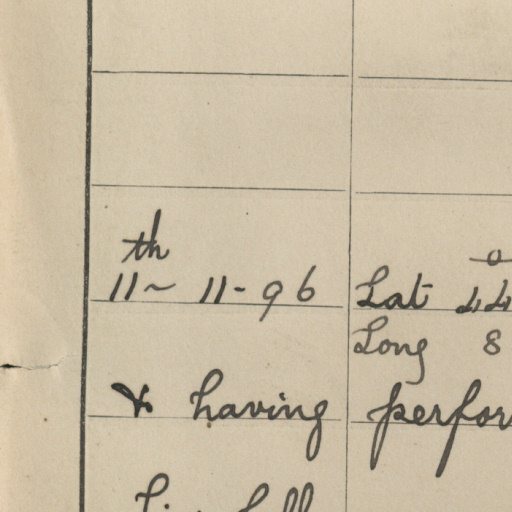 th
11 ~ 11 - 96 Lat 44
Long 8
& having perfor